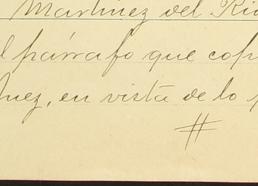 Martinez del Rio
el párrafo que cop
uez, en vista de lo
#